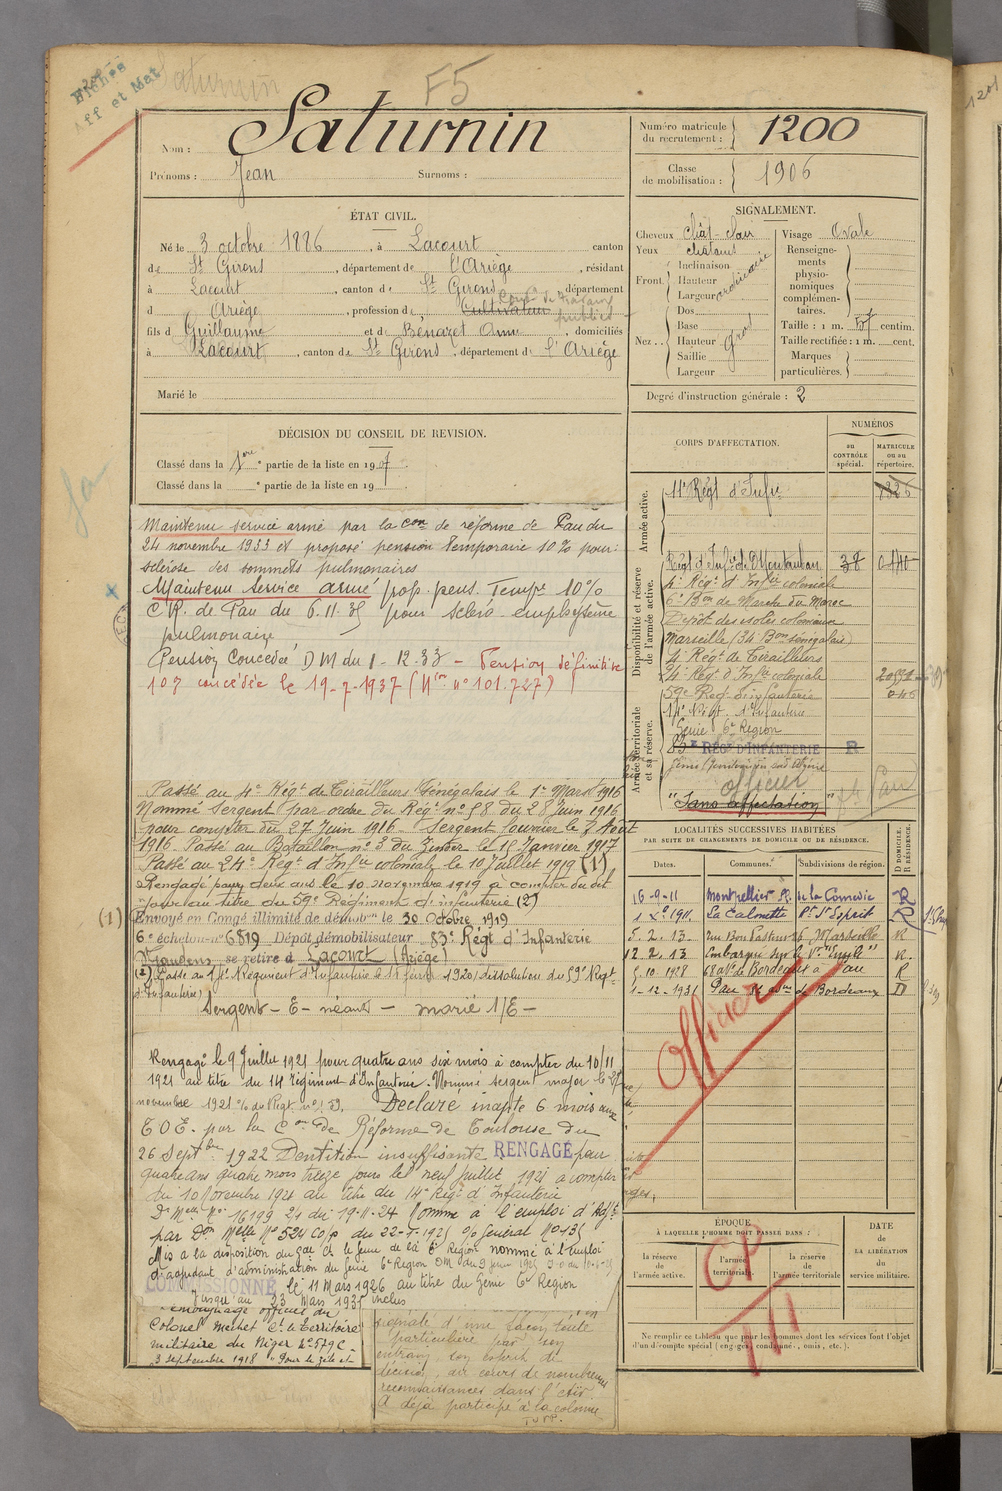 Fiches
aff et Mat
Saturnin
F5
1201
Nom : Saturnin
Prénoms : Jean Surnoms :
Numéro matricule du recrutement : 1200
Classe de mobilisation : 1906
ÉTAT CIVIL.
Né le 3 octobre 1886, à Lacourt canton
de St Girons, département de l'Ariège, résidant
à Lacourt, canton de St Girons, département
d Ariège, profession de Cultivateur
publics
fils d Guillaume et de Bénazet Anna, domiciliés
à Lacourt, canton de St Girons, département de l'Ariège
Marié le
SIGNALEMENT.
Cheveux chât-clair Visage Ovale
Yeux châtains
Front. Inclinaison
Hauteur
Largeur
ordinaire
Nez.. Dos
Base
Hauteur
Saillie
Largeur
gros
Renseigne-
ments
physio-
nomiques
complémen-
taires.
Taille : 1 m. 57 centim.
Taille rectifiée : 1 m. cent.
Marques
particulières.
Degré d'instruction générale : 2
DÉCISION DU CONSEIL DE REVISION.
Classé dans la 1ère partie de la liste en 1907.
Classé dans la e partie de la liste en 19
Maintenu service armé par la Con de réforme de Pau du
24 novembre 1933 et proposé pension temporaire 10% pour:
sclérose des sommets pulmonaires
Maintenu Service armé prop. pens. Tempre 10%
C.R. de Pau du 6.11.35 pour scléro emphysème
pulmonaire
Pension Concédée DM du 1-12-33 - Pension définitive
10% concédée le 19-7-1937 (Non n° 101.727)
Passé au 4e Régt de Tirailleurs Sénégalais le 1er Mars 1916
Nommé Sergent (par ordre du Régt n° 58 du 28 Juin 1916
pour compter du 27 Juin 1916. Sergent fourrier le 3 Août
1916. Passé au Bataillon n° 3 du Zinder le 15 Janvier 1917
Passé au 24e Régt d'Infie coloniale le 10 Juillet 1919 (1)
Rengagé pour deux ans le 10 novembre 1919 à compter du dit
jour au titre du 59e Régiment d'infanterie (2)
(1) Envoyé en Congé illimité de démobon le 30 Octobre 1919
6e échelon n° 6819 Dépôt démobilisateur 83e Régt d'Infanterie
St Gaudens, se retire à Lacourt (Ariège)
(2) Passé au 14e Régiment d'Infanterie le 11 février 1920 (dissolution du 59e Régt
d'Infanterie)
Sergent - E - néant - marié 1/E -
Rengagé le 9 Juillet 1921 pour quatre ans six mois à compter du 10/11
1921 au titre du 14 régiment d'Infanterie. Nommé sergent major le 27
novembre 1921 Déclaré inapte 6 mois aux
T.O.E. par la Con de Réforme de Toulouse du
26 Septbre 1922 Dentition insuffisante RENGAGÉ pour
quatre ans quatre mois treize jours le neuf juillet 1921 à compter
du 10 Novembre 1921 au titre du 14e Régt d'Infanterie
Dn Melle No 16199 21 du 19-11-24 Nommé à l'emploi d'Adjt
par Don Melle No 524 du 22-5-1925
Mis à la disposition du Gal Ct le génie de la 6e Région nommé à l'emploi
d'adjudant d'administration du Génie 6e Région DM du 9 juin 1925
COMMISSIONNÉ le 11 Mars 1926 au titre du Génie 6e Région
Jusqu'au 23 Mars 1935 inclus
Témoignage officiel du
Colonel Mechet Ct le Territoire
militaire du Niger N° 579C -
3 Septembre 1918 "Pour le zèle et
signalé d'une façon toute
particulière par son
entrain, son esprit de
décision, au cours de nombreuses
reconnaissances dans l'Aïr
A déjà participé à la colonne
TSVP.
CORPS D'AFFECTATION.
NUMÉROS
au CONTRÔLE spécial.
MATRICULE ou au répertoire.
Armée active.
11e Régt d'Infie 1326
Disponibilité et réserve de l'armée active.
Régt d'Infie de Montauban 38 0440
4e Régt d'Infie coloniale
6e Bon de Marche du Maroc
Dépôt des isolés coloniaux
Marseille (34 Bon sénégalais)
4e Régt de Tirailleurs
24e Régt d'Infie coloniale
59e Reg d'infanterie
Armée territoriale et sa réserve.
14e Régt d'Infanterie
Génie 6e Région
83e RÉGt D'INFANTERIE R
officier
"Sans affectation"
Pau
LOCALITÉS SUCCESSIVES HABITÉES
PAR SUITE DE CHANGEMENTS DE DOMICILE OU DE RÉSIDENCE.
Dates. Communes. Subdivisions de région. D DOMICILE. R RÉSIDENCE.
16-9-11 Montpellier Pl. de la Comédie R
1 Xe 1911. La Calmette Pt St Esprit R
5. 2. 13 rue Bon Pasteur 26 Marseille R
12. 2. 13 Embarqué sur le Vr R.
5.10.1928 68 Av. de Bordeaux à Pau R
1-12-1931 Pau de Bordeaux D
Officier
ÉPOQUE
À LAQUELLE L'HOMME DOIT PASSER DANS :
la réserve de l'armée active.
l'armée territoriale.
la réserve de l'armée territoriale
DATE DE LA LIBÉRATION du service militaire.
CP
Ne remplir ce tableau que pour les hommes dont les services font l'objet
d'un décompte spécial (engagés, condamnés, omis, etc.).